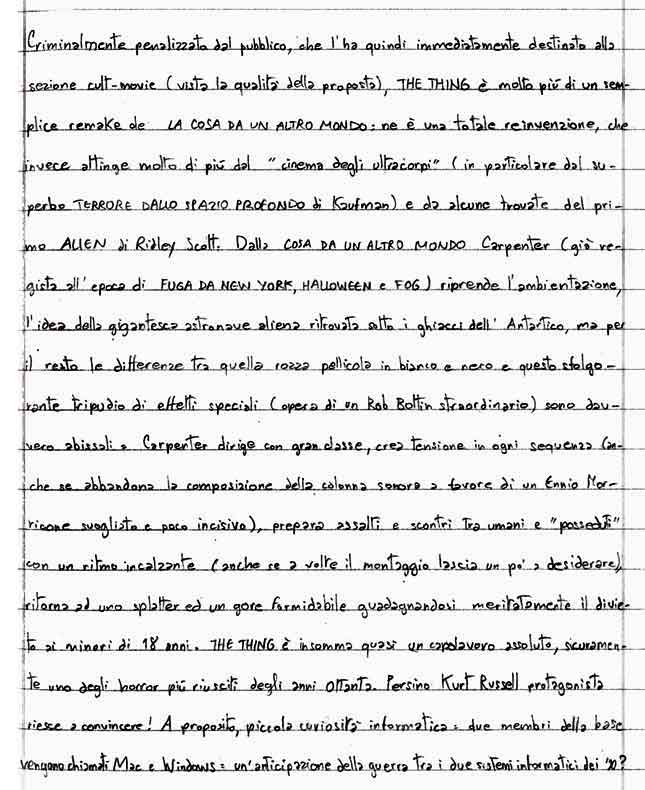 Criminalmente penalizzato dal pubblico, che l'ha quindi immediatamente destinato alla
sezione cult-movie (vista la qualità della proposta), THE THING è molto più di un sem-
plice remake de LA COSA DA UN ALTRO MONDO: ne è una totale reinvenzione, che
invece attinge molto di più dal "cinema degli ultracorpi" (in particolare dal su-
perbo TERRORE DALLO SPAZIO PROFONDO di Kaufman) e da alcune trovate del pri-
mo ALIEN di Ridley Scott. Dalla COSA DA UN ALTRO MONDO Carpenter (già re-
gista all'epoca di FUGA DA NEW YORK, HALLOWEEN e FOG) riprende l'ambientazione,
l'idea della gigantesca astronave aliena ritrovata sotto i ghiacci dell'Antartico, ma per
il resto le differenze tra quella rozza pellicola in bianco e nero e questo sfolgo-
rante tripudio di effetti speciali (opera di un Rob Bottin straordinario) sono dav-
vero abissali. Carpenter dirige con gran classe, crea tensione in ogni sequenza (an-
che se abbandona la composizione della colonna sonora a favore di un Ennio Mor-
ricone svogliato e poco incisivo), prepara assalti e scontri tra umani e "posseduti"
con un ritmo incalzante (anche se a volte il montaggio lascia un po' a desiderare),
ritorna ad uno splatter ed un gore formidabile guadagnandosi meritatamente il divie-
to ai minori di 18 anni. THE THING è insomma quasi un capolavoro assoluto, sicuramen-
te uno degli horror più riusciti degli anni Ottanta. Persino Kurt Russell protagonista
riesce a convincere! A proposito, piccola curiosità informatica: due membri della base
vengono chiamati Mac e Windows: un'anticipazione della guerra tra i due sistemi informatici dei '90?